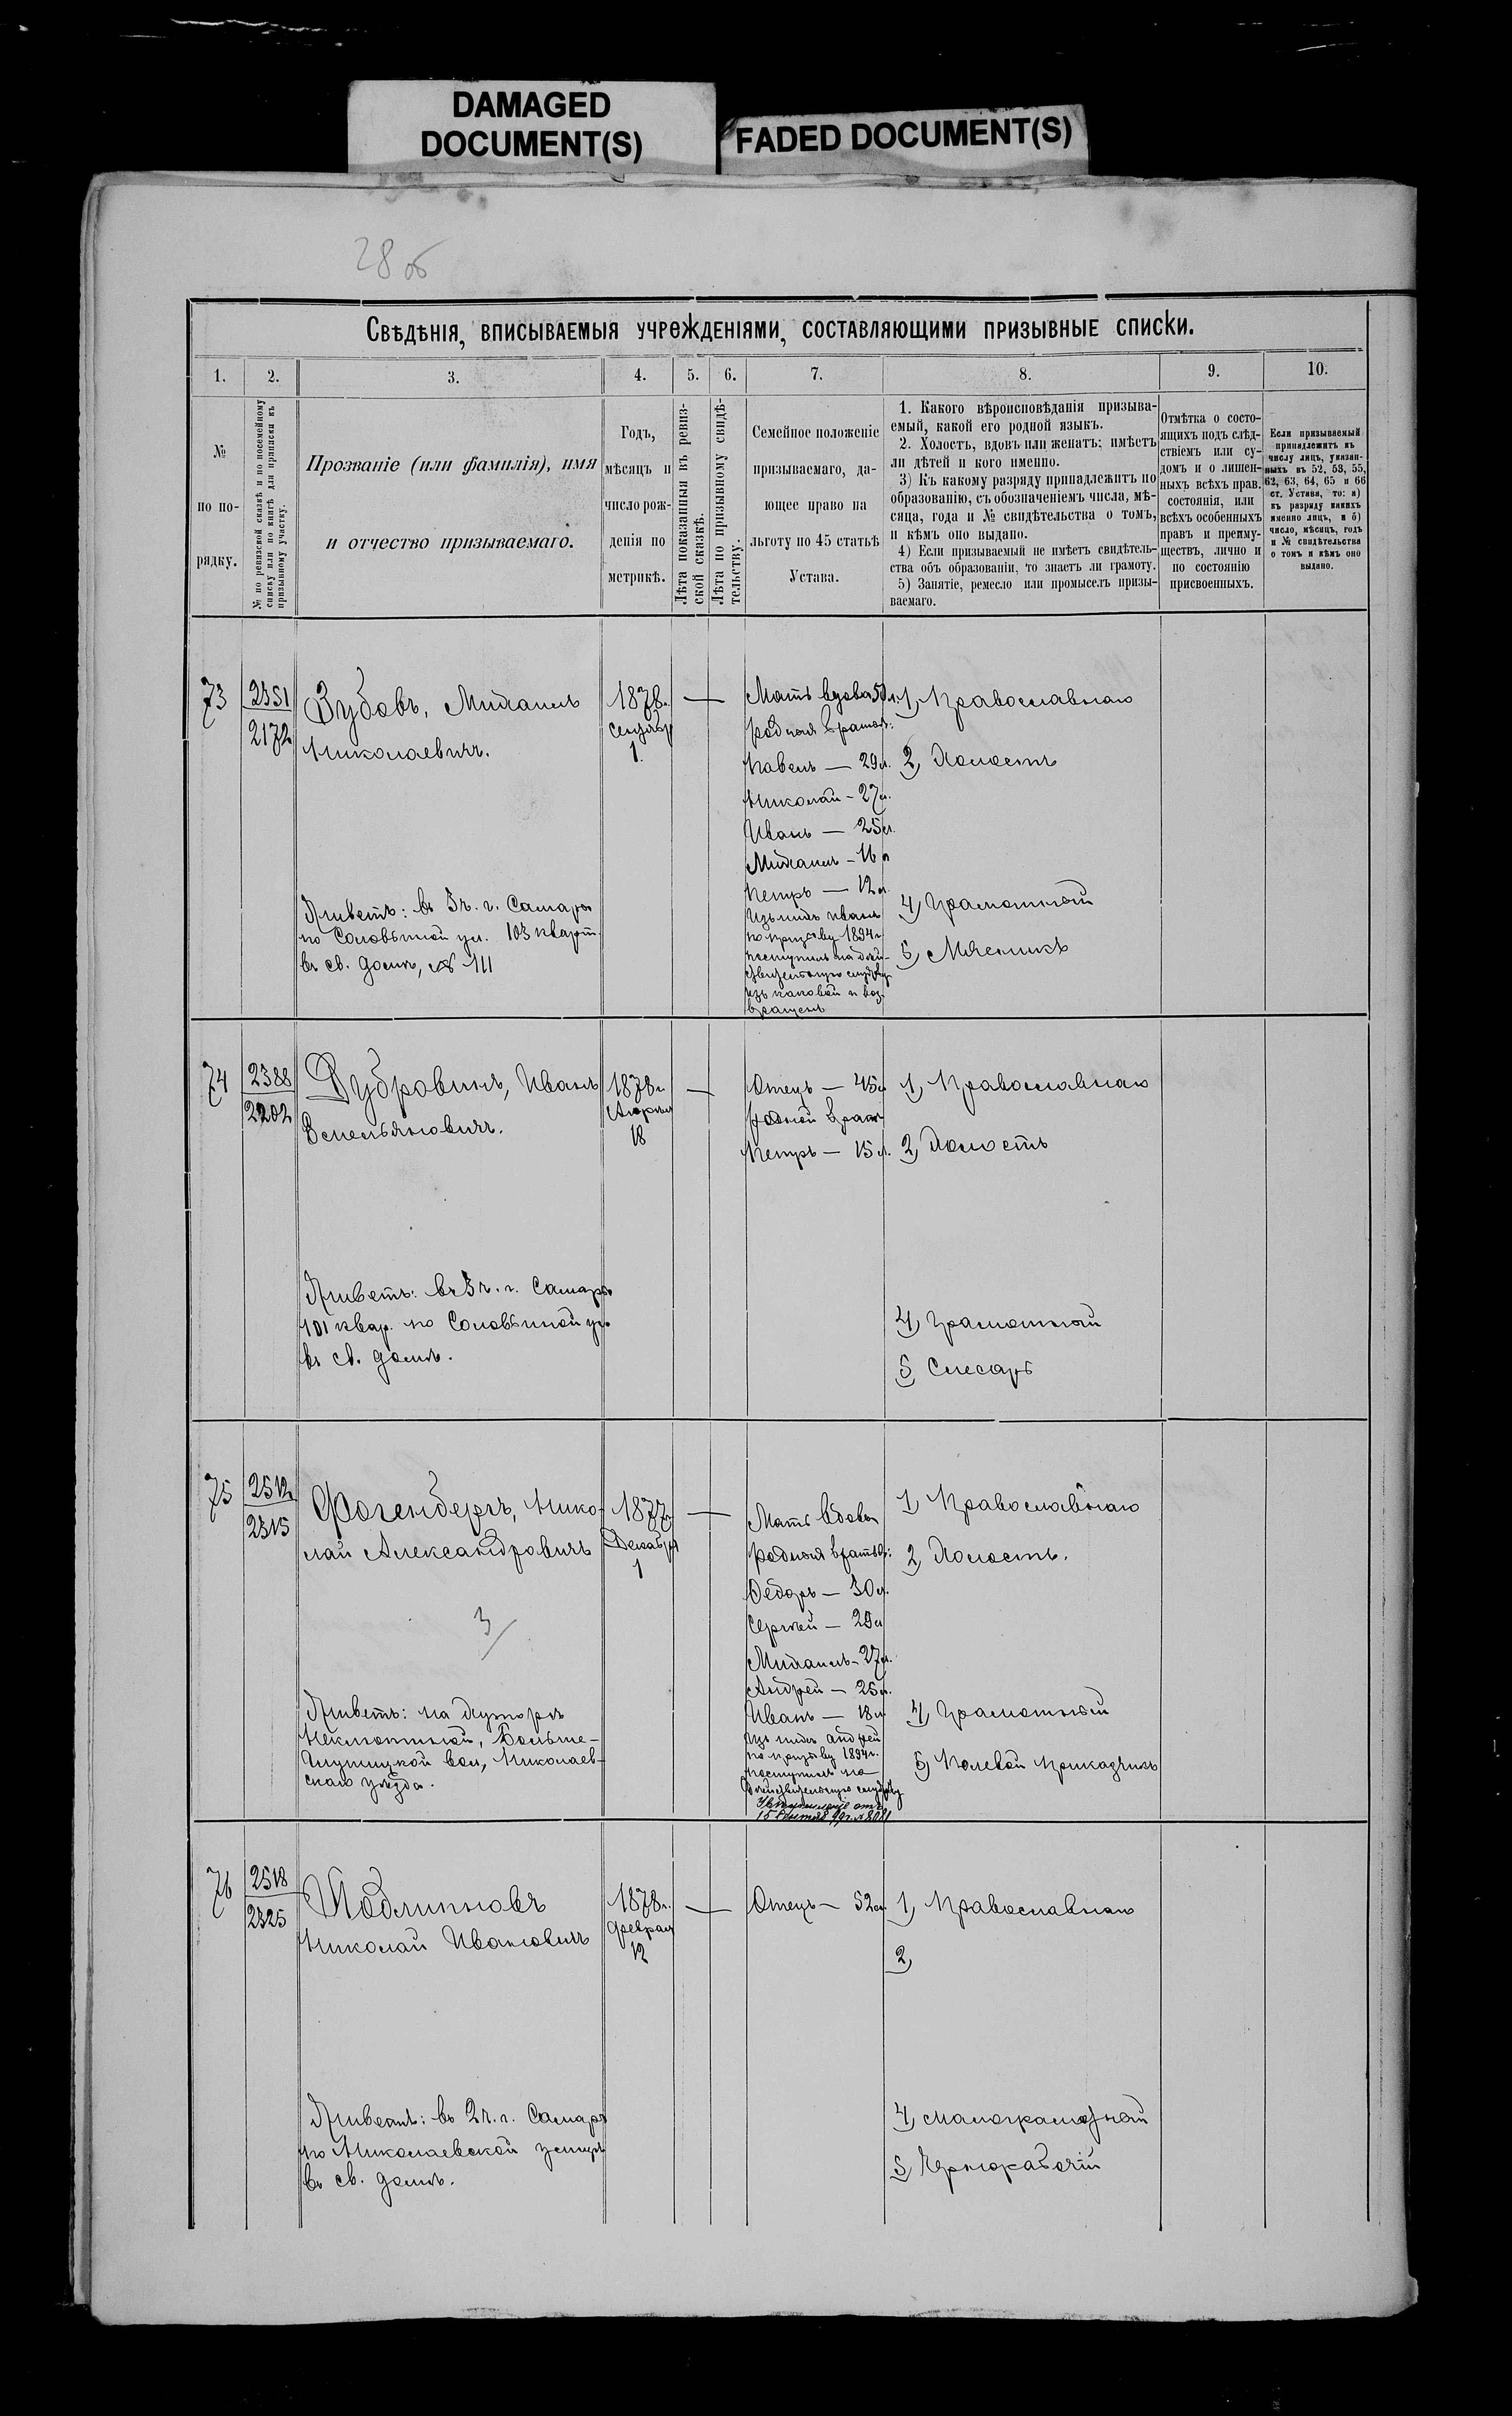 DAMAGED
DOCUMENT(S)
FADED DOCUMENT(S)
28 об
Свѣдѣнія, вписываемыя учрежденіями, составляющими призывные списки.
1.
2.
3.
4.
5.
6.
7.
8.
9.
10.
№
по по-
рядку.
№ по ревизской сказкѣ и по посемейному
списку или по книгѣ для приписки къ
призывному участку.
Прозваніе (или фамилія), имя
и отчество призываемаго.
Годъ,
мѣсяцъ и
число рож-
денія по
метрикѣ.
Лѣта показанныя въ ревиз-
ской сказкѣ.
Лѣта по призывному свидѣ-
тельству.
Семейное положеніе
призываемаго, да-
ющее право на
льготу по 45 статьѣ
Устава.
1. Какого вѣроисповѣданія призыва-
емый, какой его родной языкъ.
2. Холостъ, вдовъ или женатъ; имѣетъ
ли дѣтей и кого именно.
3) Къ какому разряду принадлежитъ по
образованію, съ обозначеніемъ числа, мѣ-
сяца, года и № свидѣтельства о томъ,
и кѣмъ оно выдано.
4) Если призываемый не имѣетъ свидѣтель-
ства объ образованіи, то знаетъ ли грамоту.
5) Занятіе, ремесло или промыселъ призы-
ваемаго.
Отмѣтка о состо-
ящихъ подъ слѣд-
ствіемъ или су-
домъ и о лишен-
ныхъ всѣхъ правъ
состоянія, или
всѣхъ особенныхъ
правъ и преиму-
ществъ, лично и
по состоянію
присвоенныхъ.
Если призываемый
принадлежитъ къ
числу лицъ, указан-
ныхъ въ 52, 53, 55,
62, 63, 64, 65 и 66
ст. Устава, то: а)
къ разряду какихъ
именно лицъ, и б)
число, мѣсяцъ, годъ
и № свидѣтельства
о томъ и кѣмъ оно
выдано.
73
2351
2172
Зубовъ, Михаилъ
Николаевичъ.
Живетъ: въ 3 ч. г. Самары
по Соловьиной ул. 103 кварт.
въ св. домѣ, № 111
1878 г.
сентября
1.
—
Мать вдова 50 л.
родныя братья:
Павелъ — 29 л.
Николай - 27 л.
Иванъ — 25 л.
Михаилъ - 16 л
Петръ — 12 л.
Изъ нихъ Иванъ
по призыву 1894 г.
поступилъ на дѣй-
ствительную службу
изъ каковой и воз-
вращенъ
1) Православнаго
2) Холостъ
4) Грамотный
5)
74
2388
2202
Дубровинъ, Иванъ
Емельяновичъ.
Живетъ: въ 3 ч. г. Самары
101 квар. по Соловьиной ул.
въ св. домѣ.
1878 г.
Апрѣля
18
—
Отецъ — 45 л
родной братъ
Петръ — 15 л.
1) Православнаго
2) Холостъ
4) Грамотный
5) Слесарь
75
2512
2315
Фогенбергъ, Нико-
лай Александровичъ
3
Живетъ: на хуторѣ
Больше-
Глушицкой вол, Николаев-
скаго уѣзда.
1877 г.
Декабря
1
—
Мать вдова
родныя братья:
Ѳедоръ — 30 л.
Сергѣй — 29 л
Михаилъ - 27 л.
Андрей — 25 л.
Иванъ — 18 л
Изъ нихъ Андрей
по призыву 1894 г.
поступилъ на
дѣйствительную службу
1) Православнаго
2) Холостъ.
4) Грамотный
5) Полевой прикащикъ
76
2518
2325
Подлипновъ
Николай Ивановичъ
Живетъ: въ 2 ч. г. Самары
по Николаевской улицѣ
въ св. домѣ.
1878 г.
февраля
12
—
Отецъ — 52 л
1) Православнаго
2)
4) Малограмотный
5) Чернорабочій